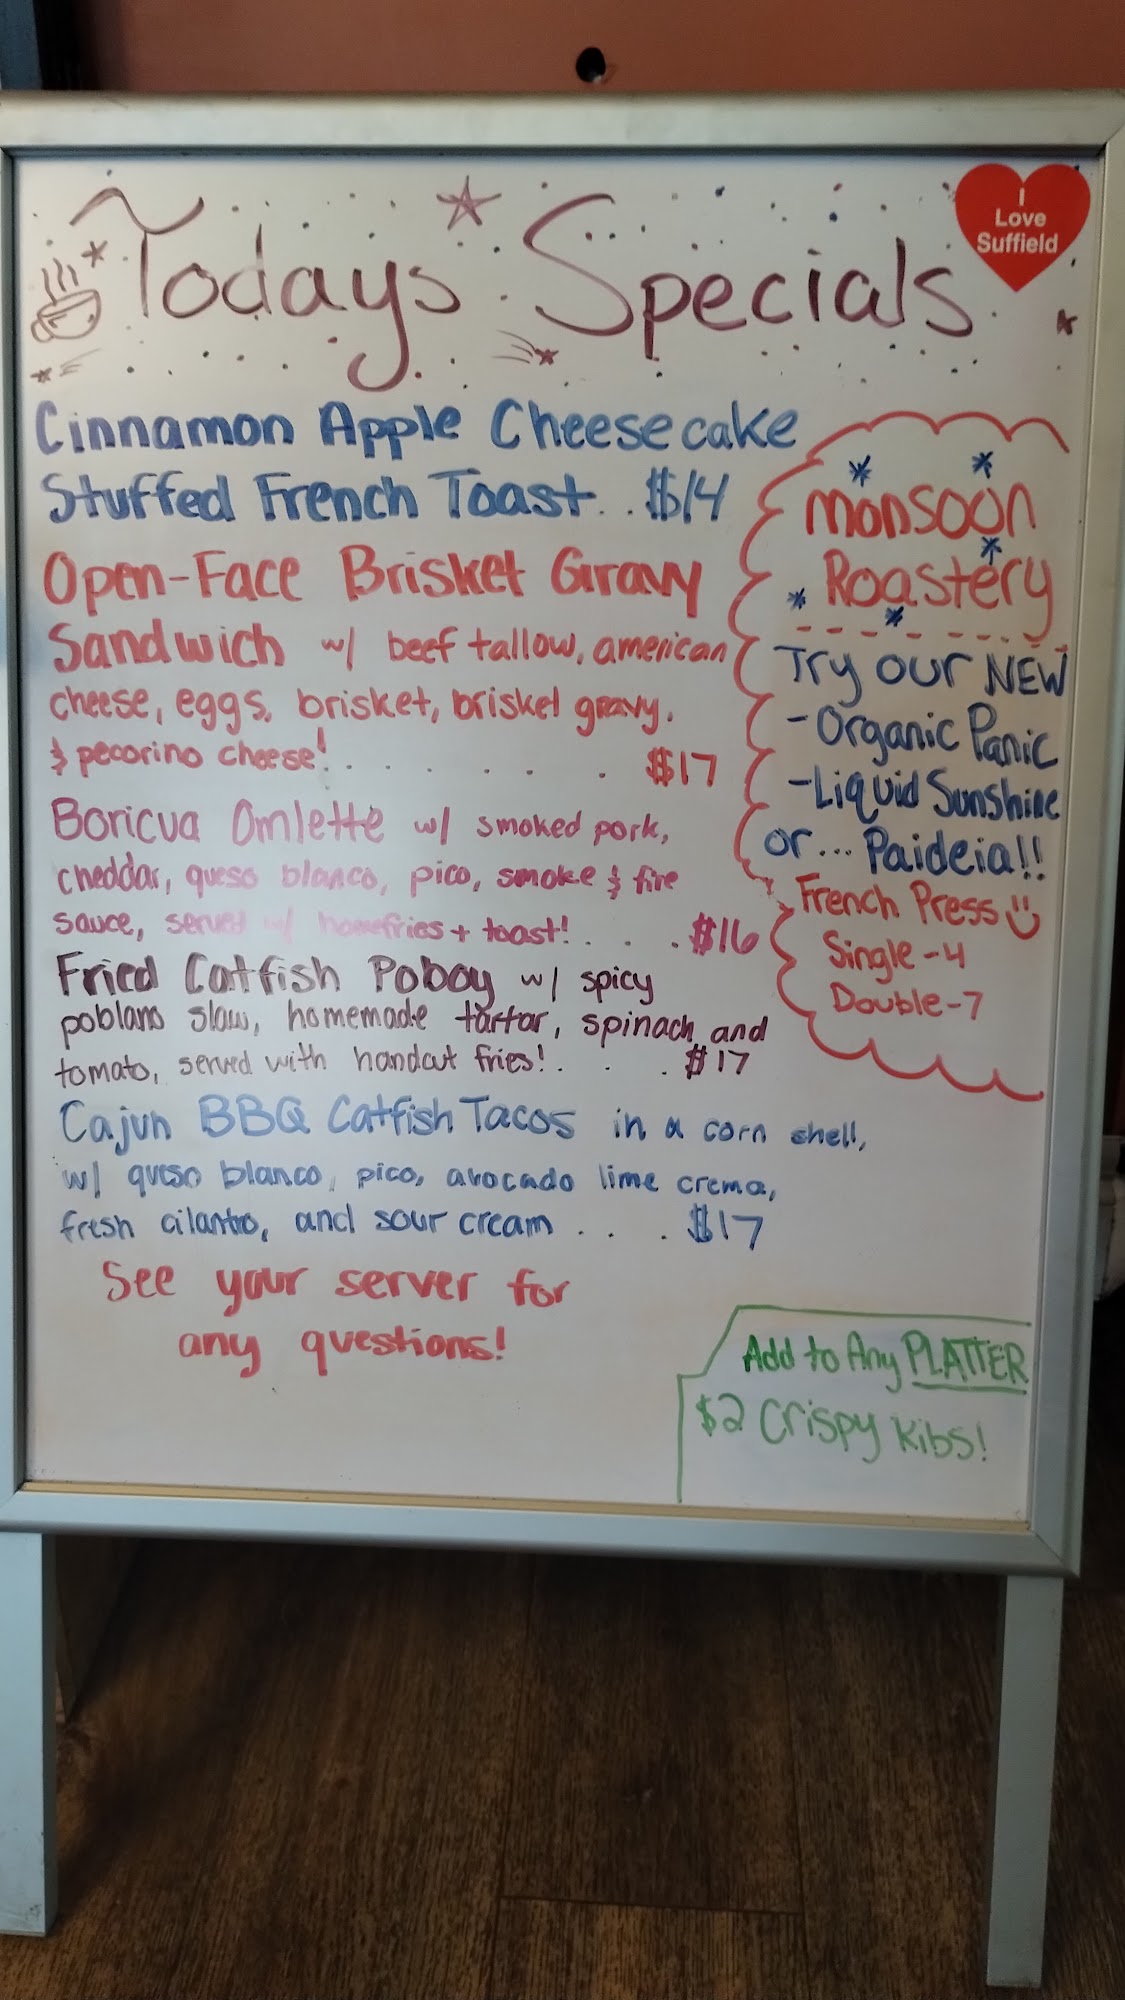 I
Love
Suffield
Todays Specials
Cinnamon Apple Cheesecake
Stuffed French Toast . . $14
Open-Face Brisket Gravy
Sandwich w/ beef tallow, american
cheese, eggs, brisket, brisket gravy,
& pecorino cheese! . . . . . . $17
Boricua Omlette w/ smoked pork,
cheddar, queso blanco, pico, smoke & fire
sauce, served w/ homefries + toast! . . . $16
Fried Catfish Poboy w/ spicy
poblano slaw, homemade tartar, spinach and
tomato, served with handcut fries! . . . $17
Cajun BBQ Catfish Tacos in a corn shell,
w/ queso blanco, pico, avocado lime crema,
fresh cilantro, and sour cream . . . $17
See your server for
any questions!
monsoon
Roastery
Try our NEW
-Organic Panic
-Liquid Sunshine
or... Paideia!!
French Press
Single-4
Double-7
Add to Any PLATTER
$2 Crispy Kibs!